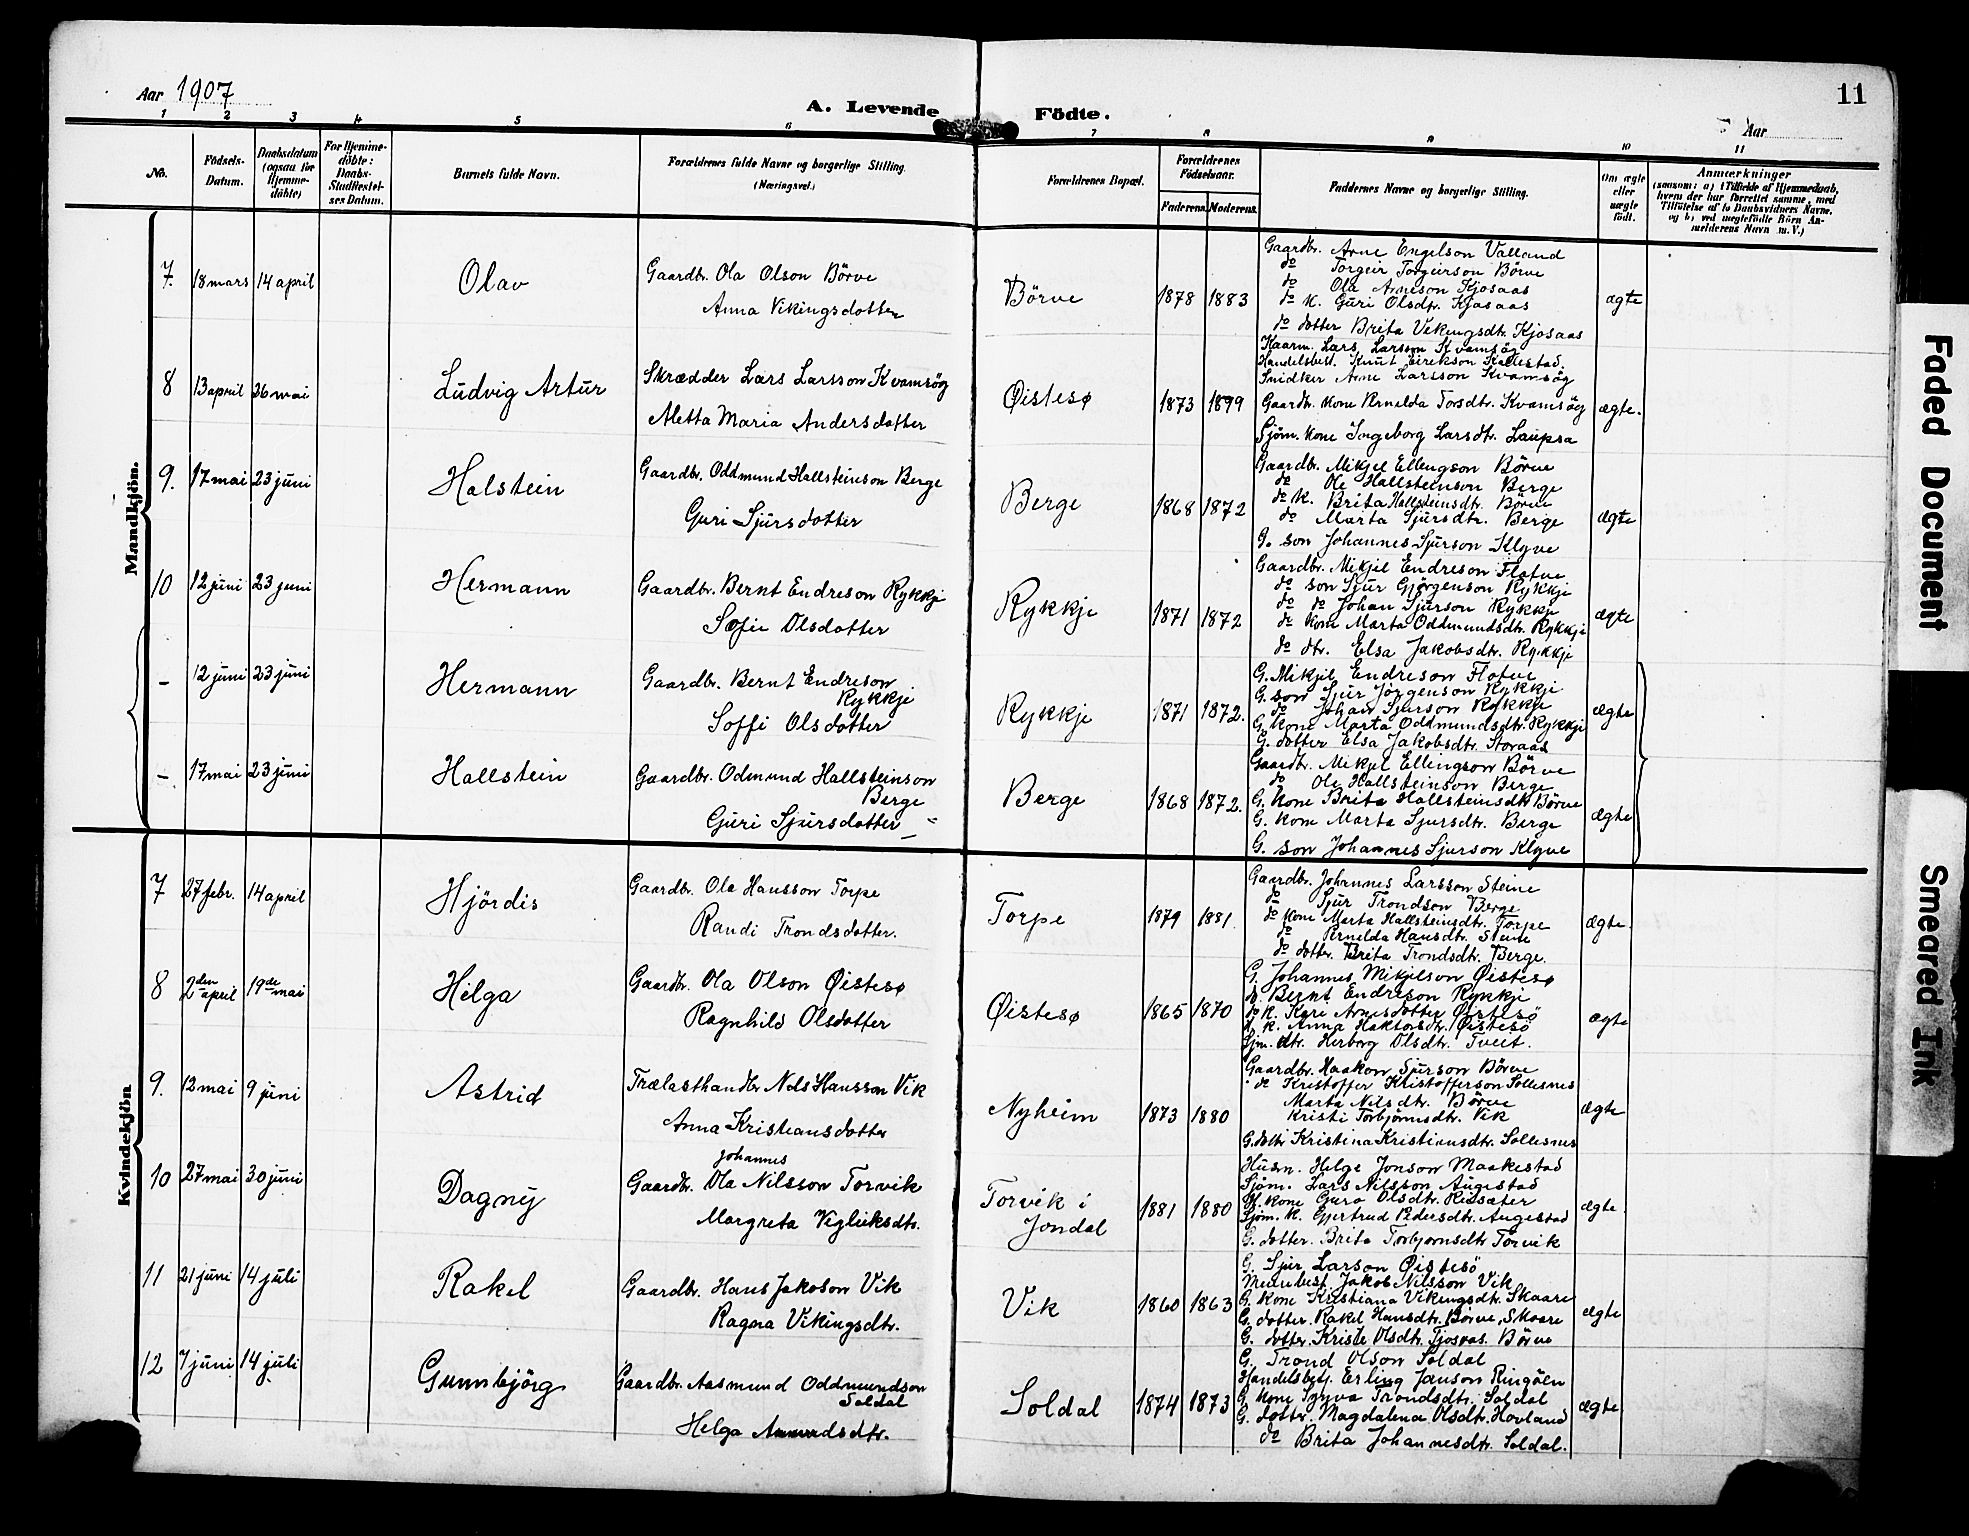 11
Aar 1907
A. Levende Födte.
Aar
1 2 3 4 5 6 7 8 9 10 11
No.
Födsels-
Datum.
Daabsdatum
(ogsaa for
Hjemme-
döbte)
For Hjemme-
döbte:
Daabs-
Stadfæstel-
ses Datum.
Barnets fulde Navn.
Forældrenes fulde Navne og borgerlige Stilling.
(Næringsvei.)
Forældrenes Bopæl.
Forældrenes
Födselsaar.
Faderens. Moderens.
Faddernes Navne og borgerlige Stilling.
Om ægte
eller
uægte
födt.
Anmærkninger
(saasom: a) i Tilfælde af Hjemmedaab,
hvem der har forrettet samme, med
Tilföielse af to Daabsvidners Navne,
og b) ved uægtefödte Börn An-
melderens Navn m. V.)
Mandkjön.
7. 18 mars 14 april Olav
Gaardbr. Ola Olson Börve
Anna Vikingsdotter
Börve 1878 1883
Gaardbr. Arne Engelson Valland
do Torgeir Torgeirson Börve
do Ola Arneson Kjosaas
do k. Guri Olsdtr. Kjosaas
do dotter Brita Vikingsdtr. Kjosaas
ægte
8 13 april 26 mai Ludvig Artur
Skrædder Lars Larsson Kvamsög
Aletta Maria Andersdotter
Øistesø 1873 1899
Kaarm. Lars Larsson Kvamsög
Handelsbest. Knut Eirekson Kallestad.
Snidker Arne Larsson Kvamsög
Gaardbr. kone Pernelda Torsdtr. Kvamsög
Sjöm. kone Ingeborg Larsdtr. Laupsa
ægte.
9. 17 mai 23 juni Halstein
Gaardbr. Oddmund Hallsteinson Berge
Guri Sjursdotter
Berge 1868 1872
Gaardbr. Mikjel Ellengson Börve
do Ole Hallsteinson Berge
do k. Brita Hallsteinsdtr. Börve
do Marta Sjursdtr. Berge
G. son Johannes Sjurson Klyve
ægte
10 12 juni 23 juni Hermann
Gaardbr. Bernt Endreson Rykkje
Sofie Olsdotter
Rykkje 1871 1872
Gaardbr. Mikjel Endreson Flotve
do son Sjur Gjörgenson Rykkje
do do Johan Sjurson Rykkje
do kone Marta Oddmundsdtr. Rykkje
do dtr. Elsa Jakobsdtr. Rykkje
ægte
– 12 juni 23 juni Hermann
Gaardbr. Bernt Endreson
Rykkje
Soffi Olsdotter
Rykkje 1871 1872.
G. Mikjel Endreson Flotve
G. son Sjur Jörgenson Rykkje
do Johan Sjurson Rykkje
G. kone Marta Oddmundsdtr. Rykkje
G. dotter Elsa Jakobsdtr. Storaas
ægte
– 17 mai 23 juni Hallstein
Gaardbr. Odmund Hallsteinson
Berge
Guri Sjursdotter –"–
Berge 1868 1872.
Gaardbr. Mikjel Ellingson Börve
do Ole Hallsteinson Berge
G. kone Brita Hallsteinsdtr. Börve
G. kone Marta Sjursdtr. Berge
G. son Johannes Sjurson Klyve
ægte
Kvindekjön
7 27 febr. 14 april Hjördis
Gaardbr. Ola Hansson Torpe
Randi Trondsdotter.
Torpe 1879 1881.
Gaardbr. Johannes Larsson Steine
do Sjur Trondson Berge
do kone Marta Hallsteinsdtr. Torpe
do Pernelda Hansdtr. Steine
do dotter Brita Trondsdtr. Berge.
ægte.
8 2den april 19de mai Helga
Gaardbr. Ola Olson Øistesø
Ragnhild Olsdotter
Øistesø 1865 1870
G. Johannes Mikjelson Øistesø
do. Bernt Endreson Rykkje
do k. Kari Arnesdotter Øistesö
d. k. Anna Haktorsdtr. Øistesö
Sjm. dtr. Herborg Olsdtr. Tveit.
ægte
9. 12 mai 9 juni Astrid
Trælasthandlr Nels Hansson Vik
Anna Kristiansdotter
Nyheim 1873 1880
Gaardbr. Haakon Sjurson Börve
do Kristoffer Kristofferson Sollesnes
Marta Nilsdtr. Börve
Kristi Torbjörnsdtr. Vik
G. dottr Kristina Kristiansdtr. Sollesnes
ægte
10 27 mai 30 juni Dagny
Johannes
Gaardbr. Ola Nilsson Torvik
Margreta Vigleiksdtr.
Torvik i
Jondal
1881 1880
Husm. Helge Jonson Maakestad
Sjöm. Lars Nilsson Augestad
kone Guro Olsdtr.
Sjöm. k. Gjertrud Pedersdtr. Augestad
G. dotter. Brita Torbjornsdtr Torvik
ægte.
11 21 juni 14 juli Rakel
Gaardbr. Hans Jakobson Vik
Ragna Vikingsdtr.
Vik 1860 1863
G. Sjur Larson Øistesö
Jakob Nilsson Vik
G. kone Kristiana Vikingsdtr. Skaare
G. dotter. Rakel Hansdtr. Börve, Skaare
G. dotter. Kriste Olsdtr. Börve
ægte
12 7 juni 14 juli Gunnbjörg
Gaardbr. Aasmund Oddmundson
Soldal
Helga Amundsdtr.
Soldal 1874 1873
G. Trond Olson Soldal
Handelsbetj. Erling Janson Ringöen
G. kone Synva Trondsdtr. Soldal
G. dotter. Magdalena Olsdtr. Hovland
do Brita Johannesdtr. Soldal.
ægte
Faded Document
Smeared Ink